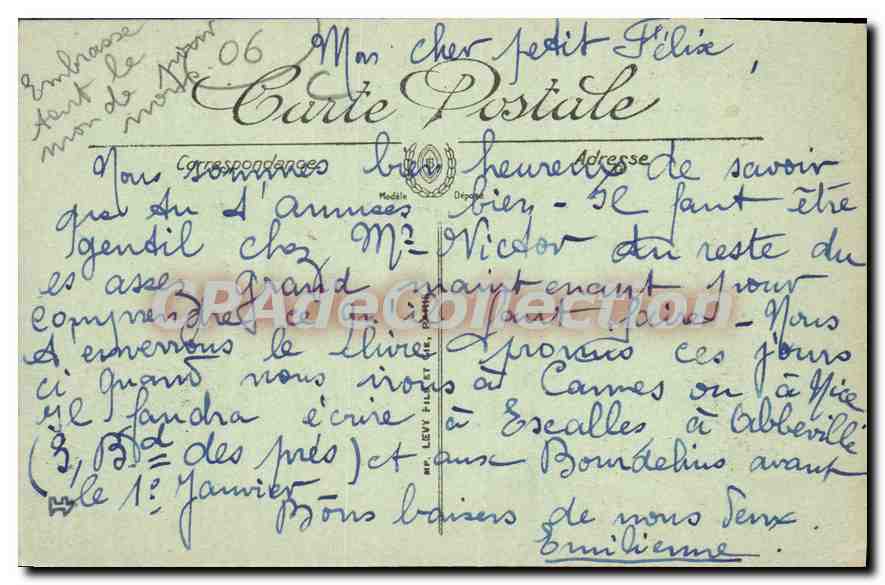 Mon cher petit Félix,
06
Embrasse
tout le
monde pour
nous
Carte Postale
Correspondances
Adresse
Modèle Déposé
Nous sommes bien heureux de savoir
que tu t'amuses bien - Il faut être
gentil chez Mr Victor du reste tu
es assez grand maintenant pour
comprendre ce qu'il faut faire - Nous
t'enverrons le livre promis ces jours
ci quand nous irons à Cannes ou à Nice
Il faudra écrire à Escalles à Abbeville
(3, Bd des prés) et aux Bourdelins avant
le 1er Janvier
Bons baisers de nous deux.
Emilienne.
IMP. LEVY FILS ET CIE, PARIS
CPAdeCollection